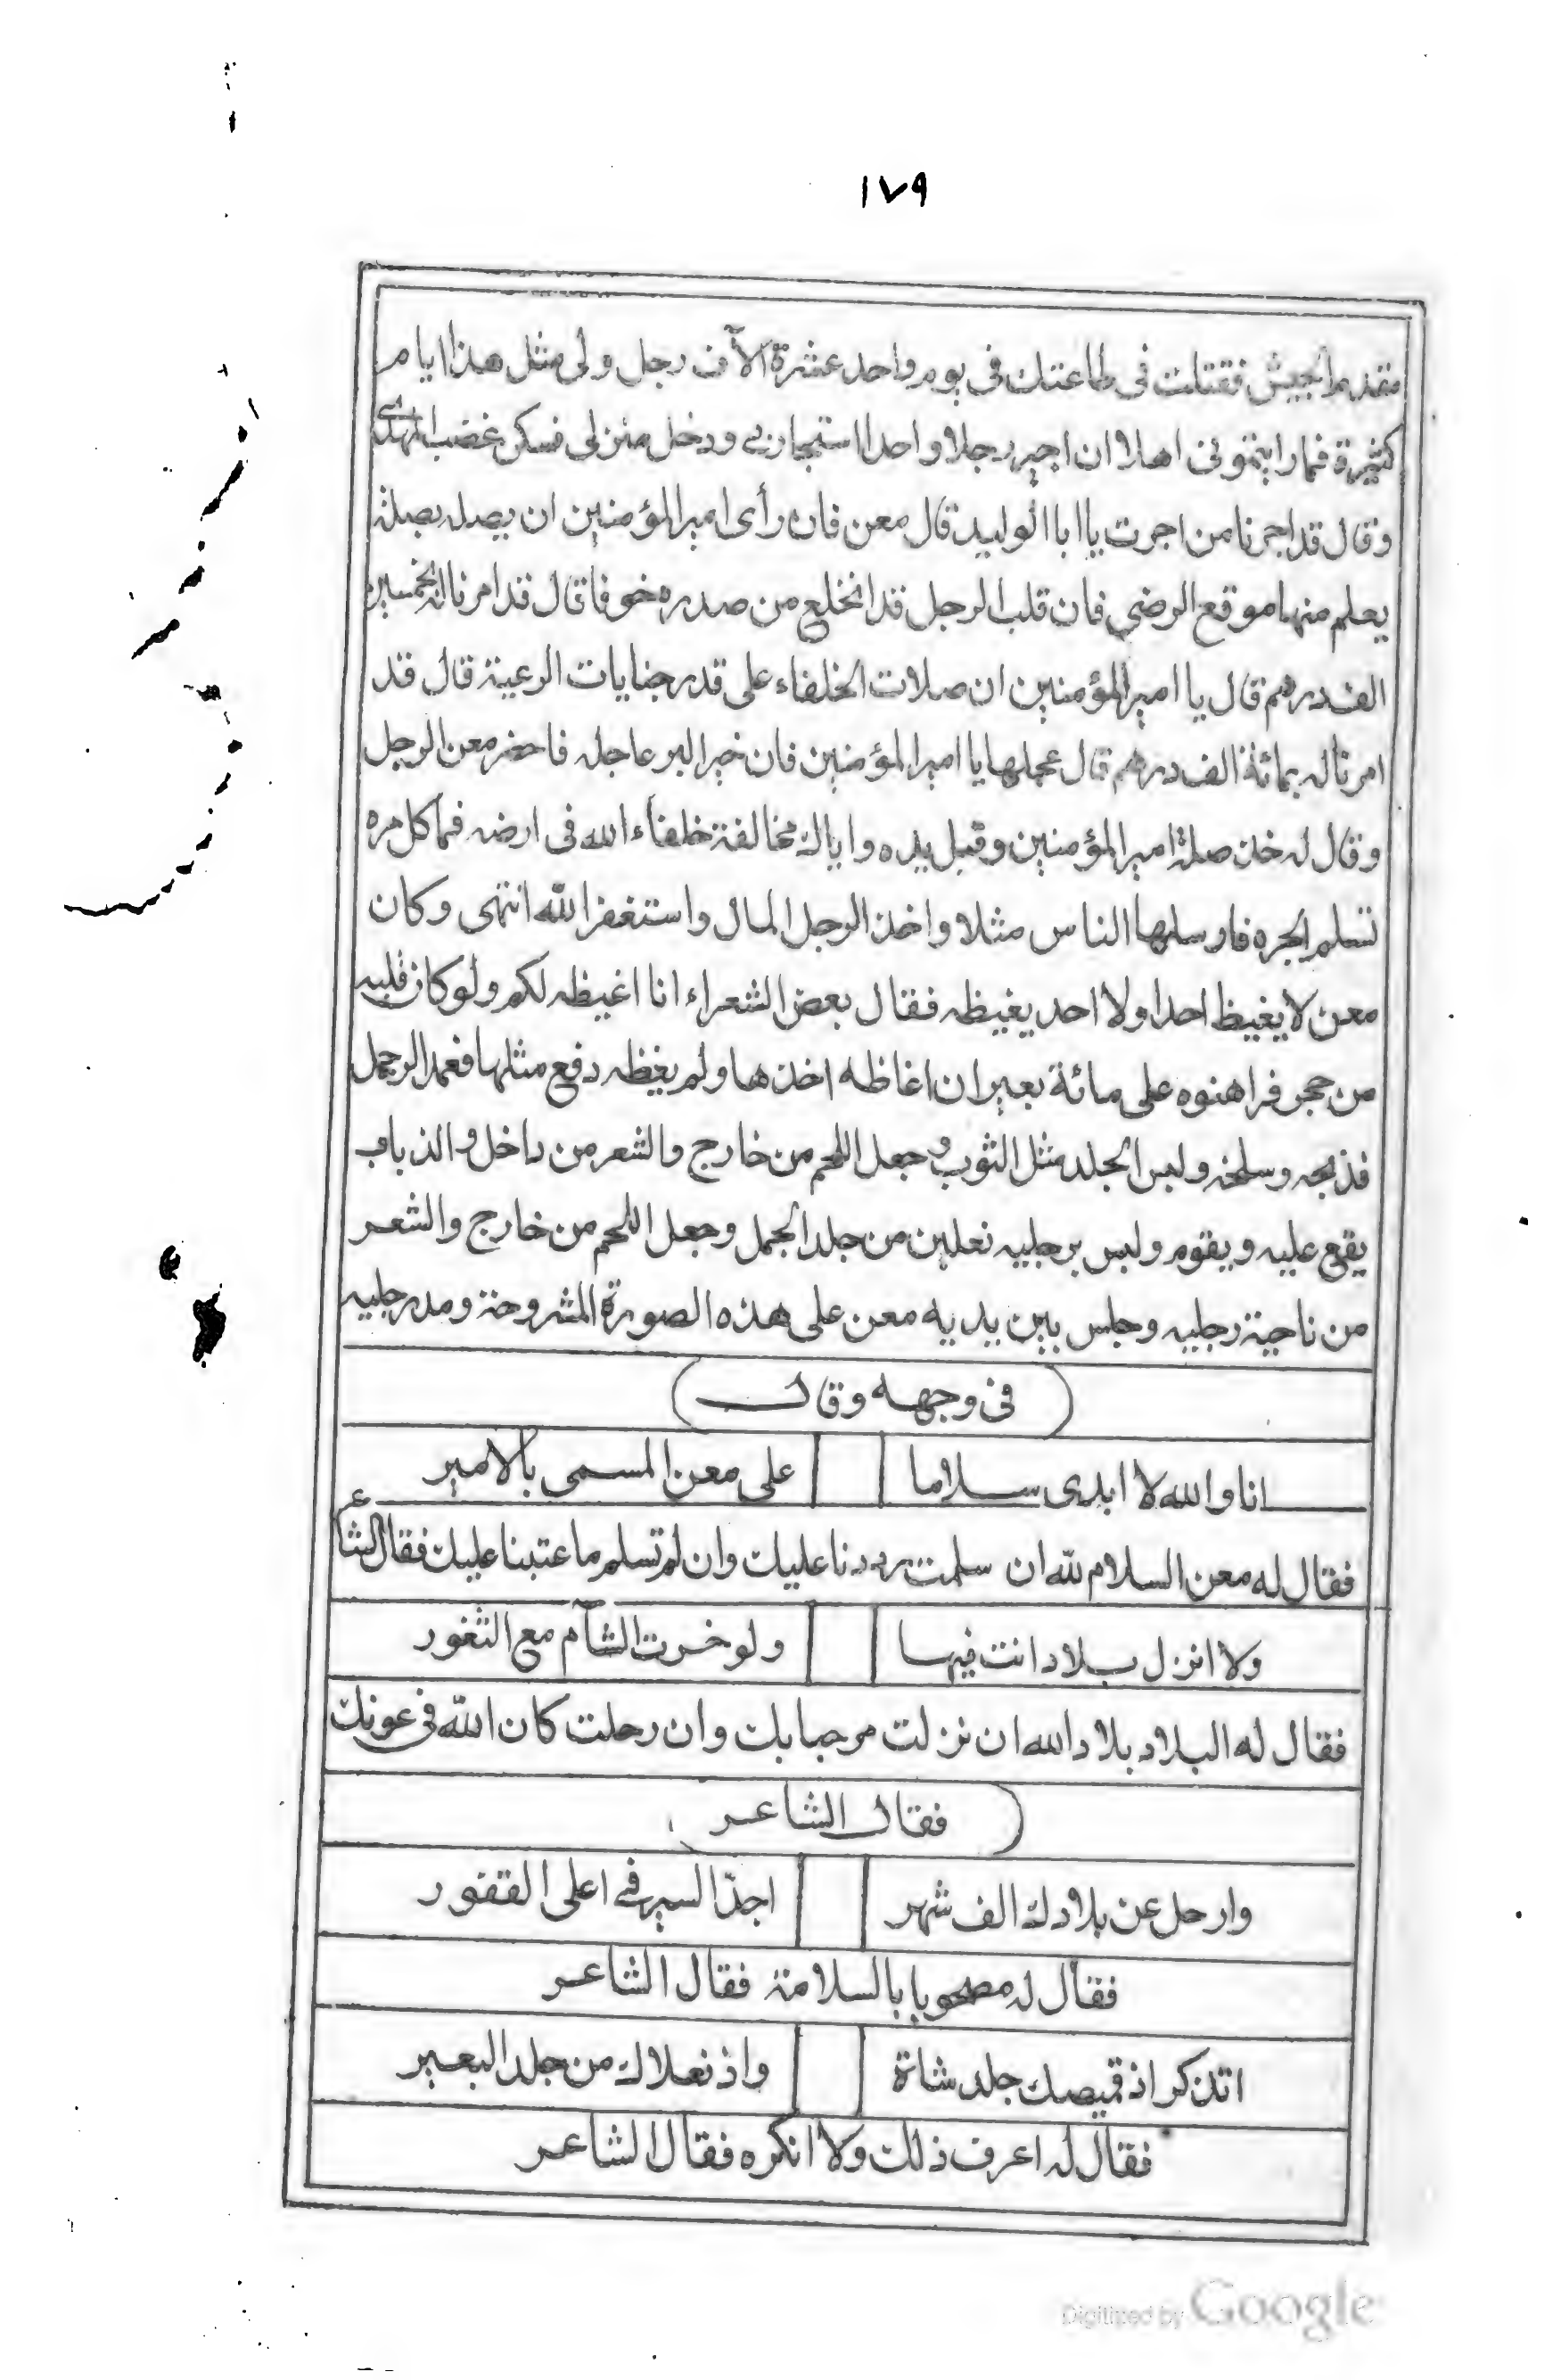 ١٧٩
مقدم الجيش فقتلت فى طاعتك فى يوم واحد عشرة الآف رجل ولى مثل هذا ايام
كثيرة فما رايتمونى اهلا ان اجير رجلا واحدا استجار بى ودخل منزلى فسكن غضب المهدى
وقال قد اجرنا من اجرت يا ابا الوليد قال معن فان رأى امير المؤمنين ان يصله بصلة
يعلم منها موقع الرضى فان قلب الرجل قد انخلع من صدره خوفا قال قد امرنا له بخمسين
الف درهم قال يا امير المؤمنين ان صلات الخلفاء على قدر جنايات الرعية قال قد
امرنا له بمائة الف درهم قال عجلها يا امير المؤمنين فان خير البر عاجله فاحضر معن الرجل
وقال له خذ صلة امير المؤمنين وقبل يده واياك مخالفة خلفاء الله فى ارضه فما كل مره
تسلم الجره فارسلها الناس مثلا واخذ الرجل المال واستغفر الله انتهى وكان
معن لا يغيظ احدا ولا احد يغيظه فقال بعض الشعراء انا اغيظه لكم ولو كان قلبه
من حجر فراهنوه على مائة بعير ان اغاظه اخذها ولم يغظه دفع مثلها فعمد الرجل لجمل
فذبحه وسلخه ولبس الجلد مثل الثوب وجعل اللحم من خارج والشعر من داخل والذباب
يقع عليه ويقوم ولبس برجليه نعلين من جلد الجمل وجعل اللحم من خارج والشعر
من ناحية رجليه وجلس بين يديه معن على هذه الصورة المشروحة ومد رجليه
فى وجهه وقال
انا والله لا ابدى سلاما على معن المسمى بالامير
فقال له معن السلام لله ان سلمت رددنا عليك وان لم تسلم ما عتبنا عليك فقال الشاعر
ولا انزل بلادا انت فيها ولو خزت الشآم مع الثغور
فقال له البلاد بلاد الله ان نزلت مرحبا بك وان رحلت كان الله فى عونك
فقال الشاعر
وارحل عن بلادك الف شهر اجدّ السير فى اعلى القفور
فقال له مصحوبا بالسلامة فقال الشاعر
اتذكر اذ قميصك جلد شاة واذ نعلاك من جلد البعير
فقال له اعرف ذلك ولا انكره فقال الشاعر
Digitized by Google